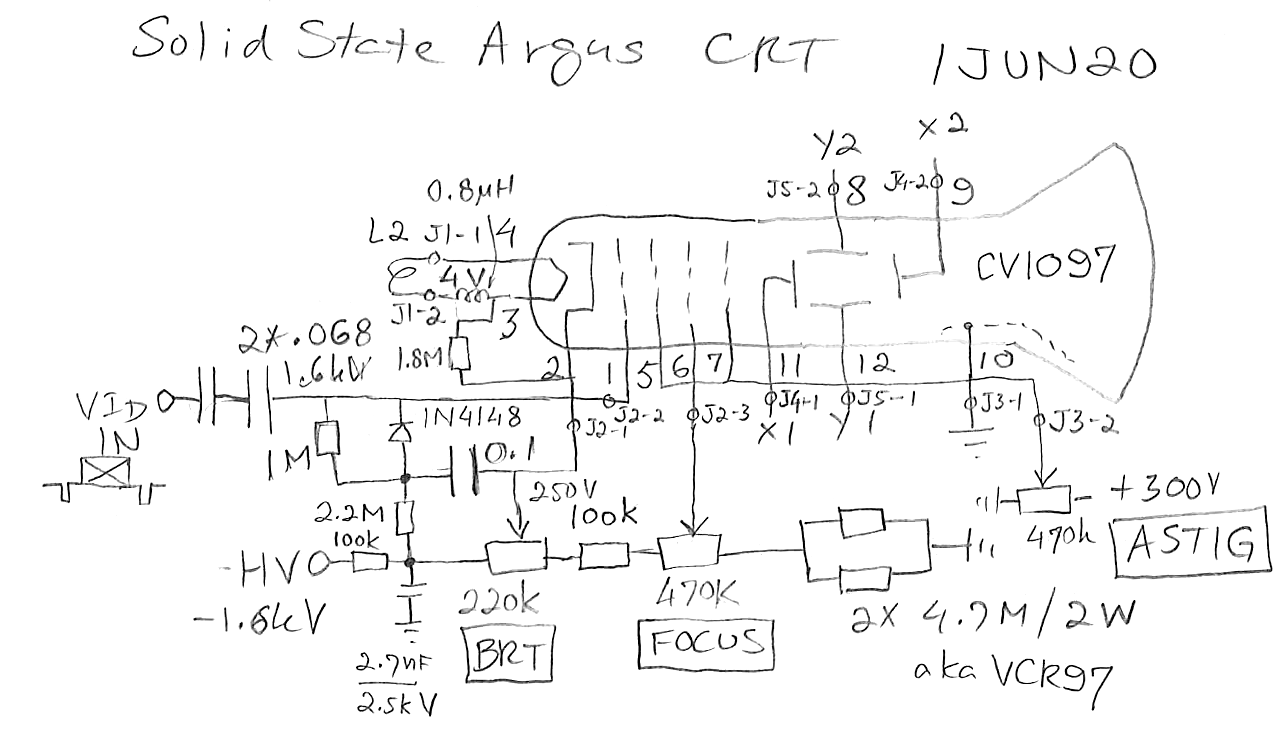 Solid State Argus CRT 1JUN20
X2
Y2
J5-2 8 J4-2 9
0.8µH
L2 J1-1 4
4V
J1-2 3
CV1097
2x.068
1.6kV
1.8M
2 1 5 6 7 11 12 10
VID
IN
1N4148
J2-1 J2-2 J2-3 J4-1 J5-1 J3-1 J3-2
X1 Y1
1M
0.1
250V
2.2M
100k
100k
+300V
470k
ASTIG
-HV
-1.6kV
220k
470K
BRT
FOCUS
2.7nF
2.5kV
2X 4.7M/2W
aka VCR97